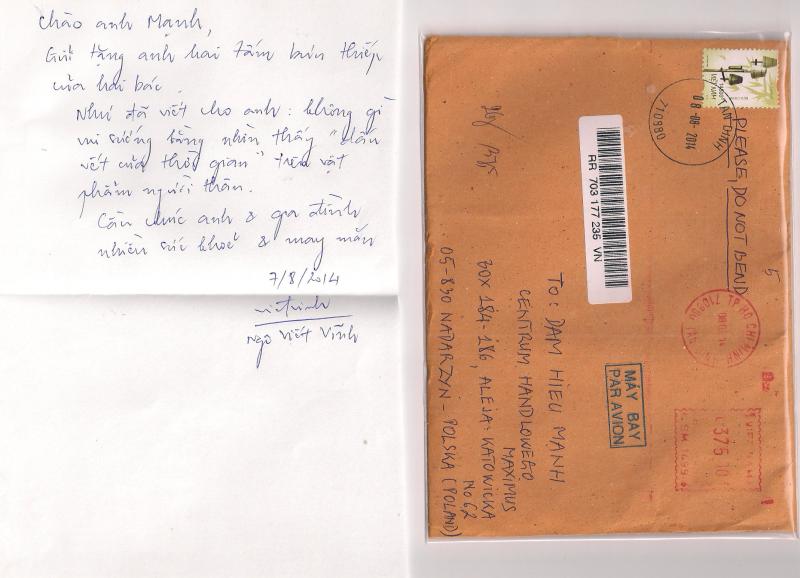 Chào anh Mạnh,
Gửi tặng anh hai tấm bưu thiếp
của hai bác.
Như đã viết cho anh: không gì
vui sướng bằng nhìn thấy "dấu
vết của thời gian" trên vật
phẩm người thân.
Cầu chúc anh & gia đình
nhiều sức khoẻ & may mắn
7/8/2014
Ngô Viết Vĩnh
PLEASE, DO NOT BEND
5
TAN DINH
08-08-2014
710980
VIETNAM
RR 703 177 235 VN
TP HO CHI MINH
MÁY BAY
PAR AVION
375 10
To: DAM HIEU MANH
CENTRUM HANDLOWEGO
MAXIMUS
BOX 184-186, ALEJA: KATOWICKA
No 62
05-830 NADARZYN - POLSKA (POLAND)